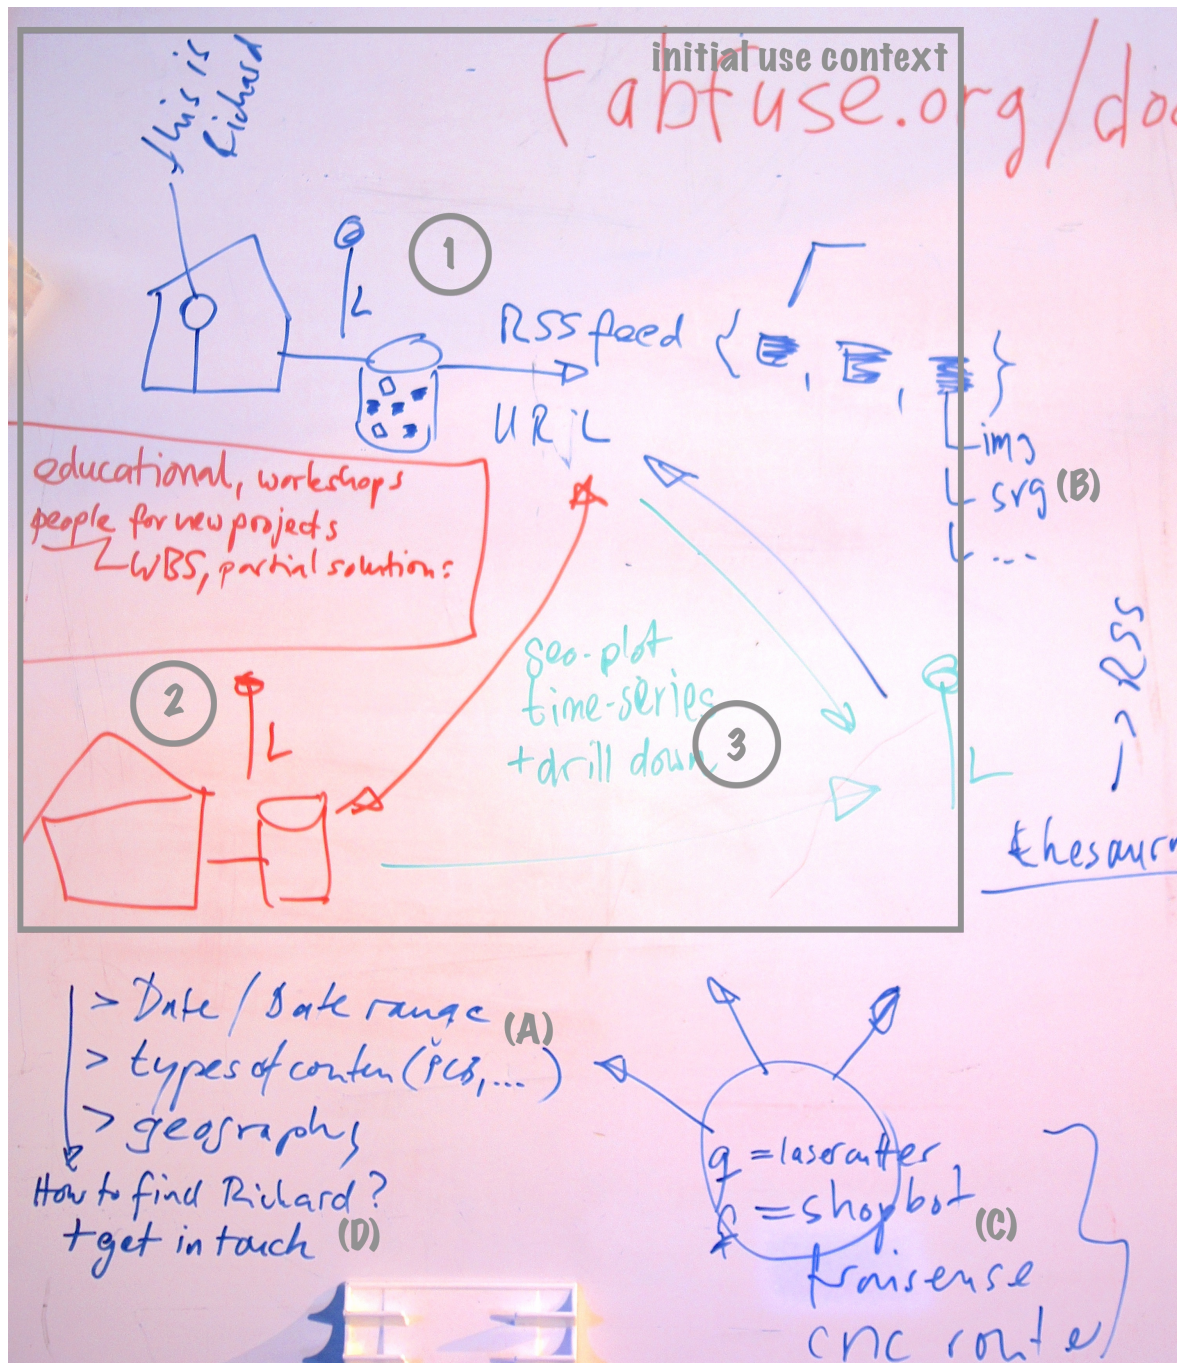 initial use context
fabfuse.org/doc
this is
Richard
1
L
RSS feed { , , }
URL
img
svg (B)
...
educational, workshops
people for new projects
WBS, partial solutions
2
L
geo-plot
time-series
+ drill down
3
L
--> RSS
> Date / Date range (A)
> types of conten (PCB, ...)
> geography
How to find Richard?
+ get in touch (D)
q = lasercutter,
= shopbot (C)
cnc route